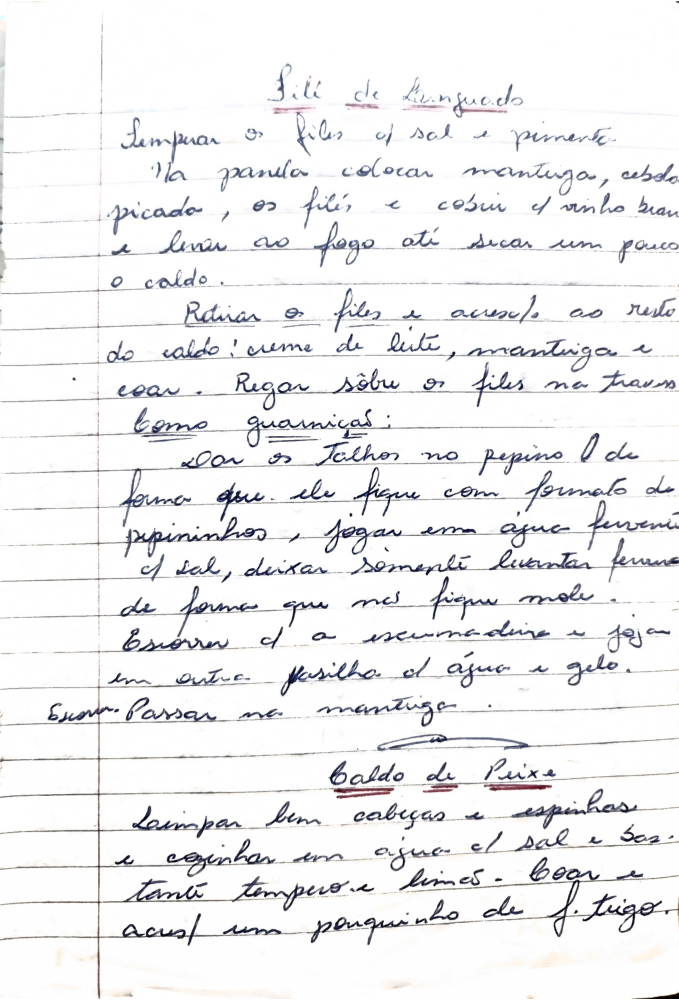 Filé de Linguado
Temperar os files c/ sal e pimenta.
Na panela colocar manteiga, cebola
picada, os filés e cobrir c/ vinho bran
e levar ao fogo até secar um pouco
o caldo.
Retirar os files e acresc/s ao resto
do caldo: creme de leite, manteiga e
coar. Regar sôbre os files na traves
Como guarnição:
Dar os Talhos no pepino de
forma que ele fique com formato de
pepininhos, jogar em água fervent
c/ sal, deixar sòmente levantar fervura
de forma que não fique mole.
Escorrer c/ a escumadeira e joja
em outra vasilha c/ água e gelo.
Escorrer. Passar na manteiga.
Caldo de Peixe
Limpar bem cabeças e espinhas
e cozinhar em água c/ sal e bas-
tante tempero e limão. Coar e
acres/ um pouquinho de f. trigo.